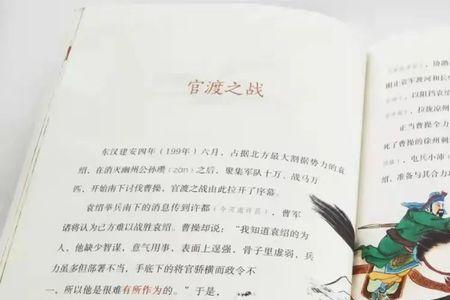 官渡之战
东汉建安四年（199年）六月，占据北方最大割据势力的袁
绍，在消灭幽州公孙瓒（zàn）之后，聚集军队十万、战马万
匹，开始南下讨伐曹操，官渡之战由此拉开了序幕。
袁绍举兵南下的消息传到许都（今河南许昌），曹军
诸将认为己方难以战胜袁绍。曹操却说：“我知道袁绍的为
人，他缺少智谋，意气用事，表面上逞强，骨子里虚弱，兵
力虽多但部署不当，手底下的将官骄横而政令不
一，所以他是很难有所作为的。”于是，
，协助
阻止袁军渡河和长
，以阻挡袁绍
，拉拢凉州
正当曹操全力
死了曹操的徐州刺
，屯兵小沛
绍，准备与其合力